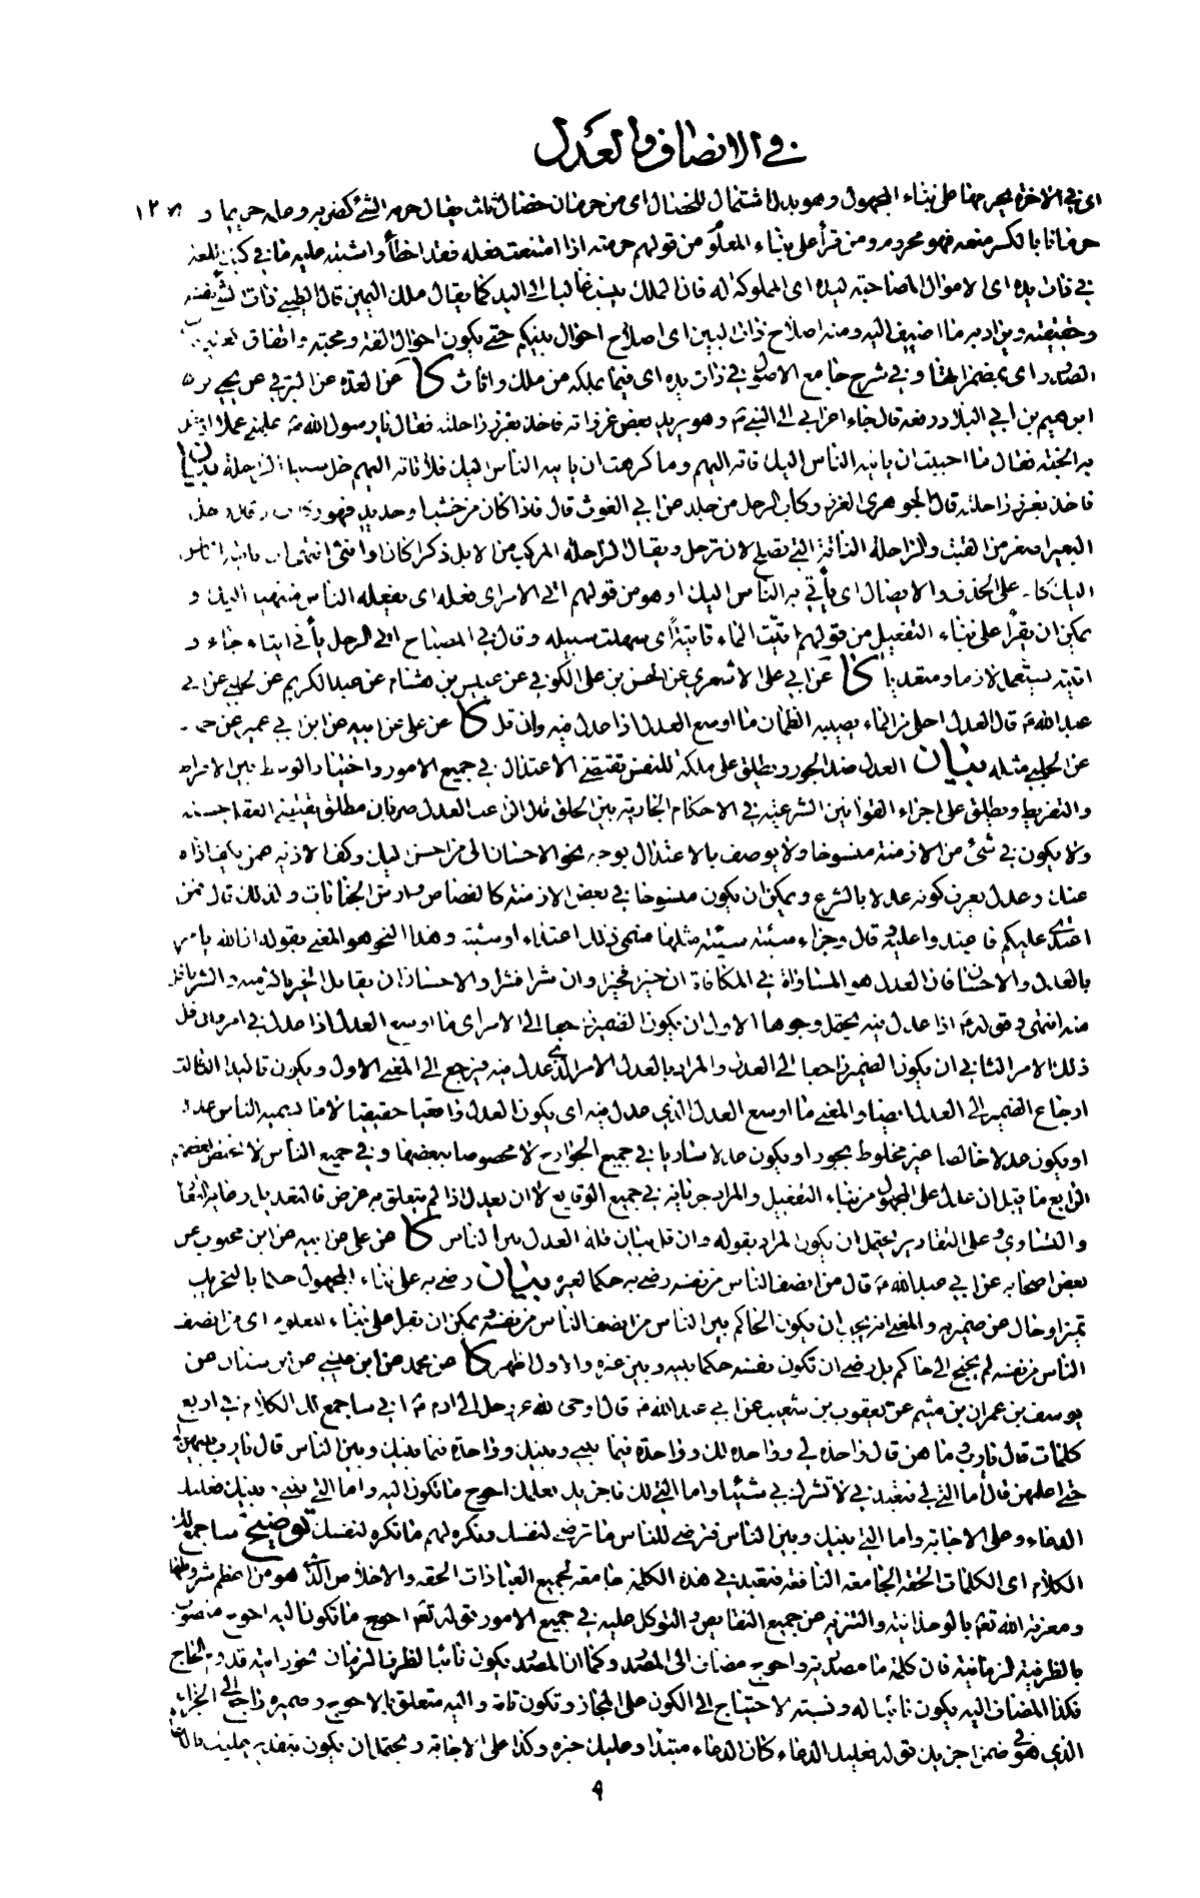 في الانصاف والعدل
اي في الاخرة يحرمها على بناء المجهول وهو بدل اشتمال للخصال اي من حرمان خصال ثلث يقال حرمه الشئ كضربه وعلمه حريما و ١٢٨
حرمانا بالكسر منعه فهو محروم ومن قرأ على بناء المعلوم من قولهم حرمته اذا امتنعت فعله فقد اخطأ واشتبه عليه ما في كتب اللغة
في ذات يده اي الاموال المصاحبة ليده اي المملوكة له فان الملك ينسب غالبا الى اليد كما يقال ملك اليمين قال الطيبي ذات الشئ نفسه
وحقيقته ويراد به ما اضيف اليه ومنه اصلاح ذات البين اي اصلاح احوال بينكم حتى يكون احوال الفة ومحبة واتفاق
الصدور اي بمضمراتها وفي شرح جامع الاصول في ذات يده اي فيما يملكه من ملك واثاث كا عن العدة عن البرقي عن يحيى بن
ابرهيم بن ابي البلاد رفعه قال جاء اعرابي الى النبي ص وهو يريد بعض غزواته فاخذ بغرز راحلته فقال يا رسول الله ص علمني عملا ادخل
به الجنة فقال ما احببت ان يأتيه الناس اليك فاته اليهم وما كرهت ان يأتيه الناس اليك فلا تأته اليهم خل سبيل الراحلة بيان
فاخذ بغرز راحلته قال الجوهري الغرز ركاب الرحل من جلد عن ابي الغوث قال فاذا كان من خشب او حديد فهو ركاب وقال رحل
البعير اصغر من القتب والراحلة الناقة التي تصلح لان ترحل ويقال الراحلة المركب من الابل ذكرا كان او انثى انتهى ان يأتيه الناس
اليك كأ على الحذف والايصال اي يأتي به الناس اليك او هو من قولهم اتى الامر اي فعله اي يفعله الناس منتهيا اليك و
يمكن ان يقرأ على بناء التفعيل من قولهم اتيت الماء تأتية اي سهلت سبيله وقال في المصباح اتى الرجل يأتي اتيانا جاء و
اتيته يستعمل لازما ومتعديا كا عن ابي علي الاشعري عن الحسن بن علي الكوفي عن عبيس بن هشام عن عبد الكريم عن الحلبي عن ابي
عبد الله ع قال العدل احلى من الماء يصيبه الظمآن ما اوسع العدل اذا عدل فيه وان قل كا عن علي عن ابيه عن ابن ابي عمير عن حماد
عن الحلبي مثله بيان العدل ضد الجور ويطلق على ملكة للنفس يقتضي الاعتدال في جميع الامور واختيار الوسط بين الافراط
والتفريط ويطلق على اجراء القوانين الشرعية في الاحكام الجارية بين الخلق قال الراغب العدل ضربان مطلق يقتضي العقل حسنه
ولا يكون في شئ من الازمنة منسوخا ولا يوصف بالاعتداء بوجه نحو الاحسان الى من احسن اليك وكف الاذية عمن يكف اذاه
عنك وعدل يعرف كونه عدلا بالشرع ويمكن ان يكون منسوخا في بعض الازمنة كالقصاص وارش الجنايات ولذلك قال فمن
اعتدى عليكم فاعتدوا عليه وقال وجزاء سيئة سيئة مثلها فسمى ذلك اعتداء وسيئة وهذا النحو هو المعنى بقوله ان الله يأمر
بالعدل والاحسان فان العدل هو المساواة في المكافاة ان خيرا فخير وان شرا فشر والاحسان ان يقابل الخير باكثر منه والشر باقل
منه انتهى وقوله ع اذا عدل فيه يحتمل وجوها الاول ان يكون الضمير راجعا الى الامر اي ما اوسع العدل اذا عدل في امر وان قل
ذلك الامر الثاني ان يكون الضمير راجعا الى العدل والمراد بالعدل الامر الذي عدل فيه فيرجع الى المعنى الاول ويكون تأكيدا الثالث
ارجاع الضمير الى العدل ايضا والمعنى ما اوسع العدل الذي عدل فيه اي يكون العدل واقعيا حقيقيا لا ما يسميه الناس عدلا
او يكون عدلا خالصا غير مخلوط بجور او يكون عدلا ساريا في جميع الجوارح لا مخصوصا ببعضها وفي جميع الناس لا يختص ببعضهم
الرابع ما قيل ان عدل على المجهول من بناء التفعيل والمراد جريانه في جميع الوقايع لا ان يعدل اذا لم يتعلق به غرض فالتعديل رعاية التعادل
والتساوي وعلى التقادير يحتمل ان يكون المراد بقوله وان قل بيان قلة العدل بين الناس كا عن علي عن ابيه عن ابن محبوب عن
بعض اصحابه عن ابي عبد الله ع قال من انصف الناس من نفسه رضي به حكما لغيره بيان رضي به على بناء المجهول حكما بالتحريك
تميز او حال عن ضمير به والمعنى انه يجب ان يكون الحاكم بين الناس من انصف الناس من نفسه ويمكن ان يقرأ على بناء المعلوم اي من انصف
الناس من نفسه لم يحتج الى حاكم بل رضي ان تكون نفسه حكما بينه وبين غيره والاول اظهر كا عن محمد عن ابن عيسى عن ابن سنان عن
يوسف بن عمران بن ميثم عن يعقوب بن شعيب عن ابي عبد الله ع قال اوحى الله عز وجل الى ادم ع اني ساجمع لك الكلام في اربع
كلمات قال يا رب وما هن قال واحدة لي وواحدة لك وواحدة فيما بيني وبينك وواحدة فيما بينك وبين الناس قال يا رب بينهن لي
حتى اعلمهن قال اما التي لي فتعبدني لا تشرك بي شيئا واما التي لك فاجزيك بعملك احوج ما تكون اليه واما التي بيني وبينك فعليك
الدعاء وعلي الاجابة واما التي بينك وبين الناس فترضى للناس ما ترضى لنفسك وتكره لهم ما تكره لنفسك توضيح ساجمع لك
الكلام اي الكلمات الحقة الجامعة النافعة فتعبدني هذه الكلمة جامعة لجميع العبادات الحقة والاخلاص الذي هو من اعظم شروطها
ومعرفة الله تعالى بالوحدانية والتنزيه عن جميع النقايص والتوكل عليه في جميع الامور قوله تعالى احوج ما تكون اليه احوج منصوب
بالظرفية الزمانية فان كلمة ما مصدرية واحوج مضاف الى المصدر وكما ان المصدر يكون نائبا لظرف الزمان نحو رايته قدوم الحاج
فكذا المضاف اليه يكون نائبا له ونسبة الاحتياج الى الكون على المجاز وتكون تامة واليه متعلق بالاحوج وضميره راجع الى الجزاء
الذي هو في ضمن اجزيك قوله فعليك الدعاء كان الدعاء مبتدا وعليك خبره وكذا علي الاجابة ويحتمل ان يكون بتقدير عليك بالدعاء
٩